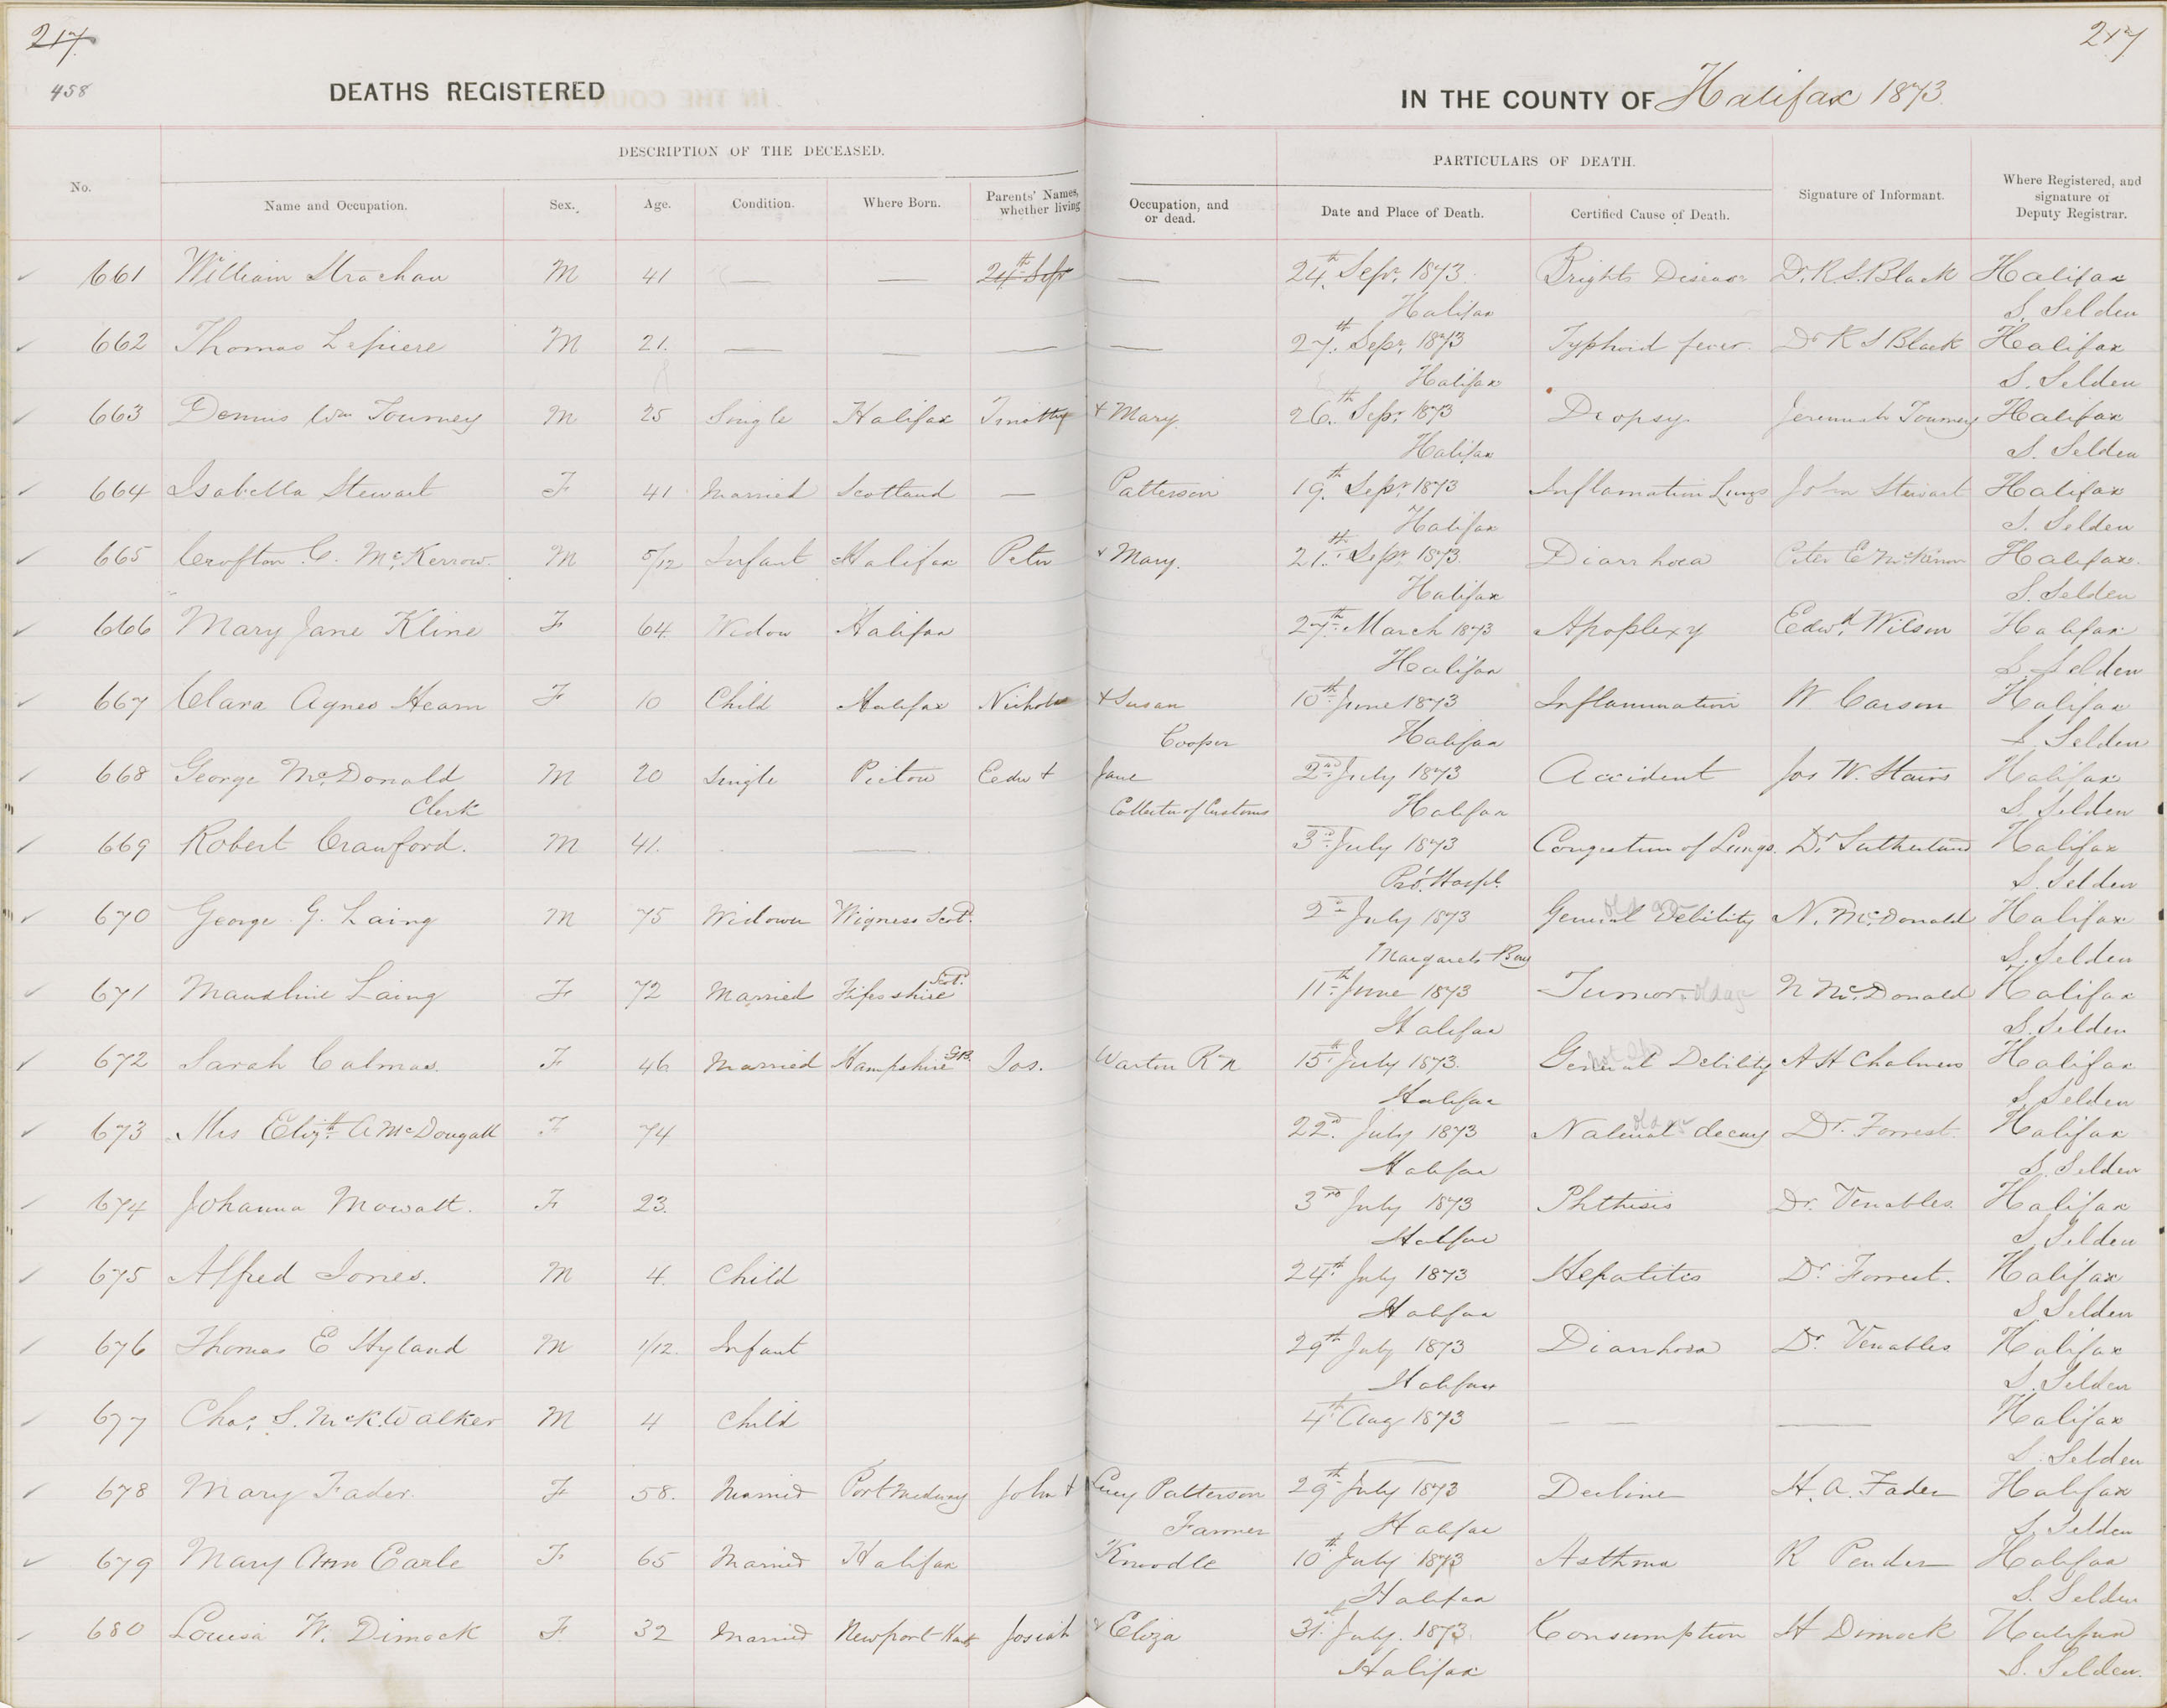 217 217
458 DEATHS REGISTERED IN THE COUNTY OF Halifax 1873
DESCRIPTION OF THE DECEASED. PARTICULARS OF DEATH.
No. Name and Occupation. Sex. Age. Condition. Where Born. Parents' Names, whether living Occupation, and or dead. Date and Place of Death. Certified Cause of Death. Signature of Informant. Where Registered, and signature of Deputy Registrar.
661 William Strachan M 41 — — 24th Sepr — 24th Sepr 1873 Brights Disease Dr. R. S. Black Halifax
Halifax S. Selden
662 Thomas Lepiere M 21. — — — 27th Sepr 1873 Typhoid fever Dr R S Black Halifax
Halifax S. Selden
663 Dennis Wm Tourney M 25 Single Halifax Timothy + Mary. 26th Sepr 1873 Dropsy Jeremiah Tourney Halifax
Halifax S. Selden
664 Isabella Stewart F 41 Married Scotland — Patterson 19th Sepr 1873 Inflamation Lungs John Stewart Halifax
Halifax S. Selden
665 Crofton C. McKerrow. M 5/12 Infant Halifax Peter + Mary. 21th Sepr 1873 Diarrhoea Peter E McKerrow Halifax.
Halifax S. Selden
666 Mary Jane Kline F 64. Widow Halifax 27th March 1873 Apoplexy Edwd Wilson Halifax
Halifax S. Selden
667 Clara Agnes Hearn F 10 Child Halifax Nicholas + Susan 10th June 1873 Inflammation W Carson Halifax
Cooper Halifax S Selden
668 George McDonald M 20 Single Pictou Edw + Jane 2nd July 1873 Accident Jos W. Stairs Halifax
Clerk Collector of Customs Halifax S Selden
669 Robert Crawford. M 41. — 3rd July 1873 Congestion of Lungs. Dr Sutherland Halifax
Pro. Hospl. S. Selden
670 George G. Laing M 75 Widower Scot. 2nd July 1873 General Debility old age N. McDonald Halifax
Margarets Bay S. Selden
671 Laing F 72 Married Fifesshire Scot. 11th June 1873 Tumor. old age N McDonald Halifax
Halifax S. Selden
672 Sarah Calmas. F 46 Married Hampshire GB. Jos. Warton R N 15th July 1873. General Debility A H Chalmers Halifax
Halifax S. Selden
673 Mrs Elizth A McDougall F 74 22nd July 1873 Natural decay old age Dr. Forrest. Halifax
Halifax S. Selden
674 Johanna Mowatt. F 23. 3rd July 1873 Phthisis Dr. Venables. Halifax
Halifax S. Selden
675 Alfred Jones. M 4. Child 24th July 1873 Hepatites Dr Forrest. Halifax
Halifax S Selden
676 Thomas E Hyland M 1/12. Infant 29th July 1873 Diarrhoea Dr Venables Halifax
Halifax S. Selden
677 Chas. S. McK. Walker M 4 Child 4th Aug 1873 — — — Halifax
S. Selden
678 Mary Fader. F 58. Married Port Medway John + Lucy Patterson 29th July 1873 Decline H. A. Fader Halifax
Farmer Halifax S. Selden
679 Mary Ann Earle F 65 Married Halifax Knodle 10th July 1873 Asthma R Pender Halifax
Halifax S. Selden
680 Louisa W. Dimock F 32 Married Newport Hants Josiah + Eliza 31st July. 1873. Consumption H Dimock Halifax
Halifax S. Selden.